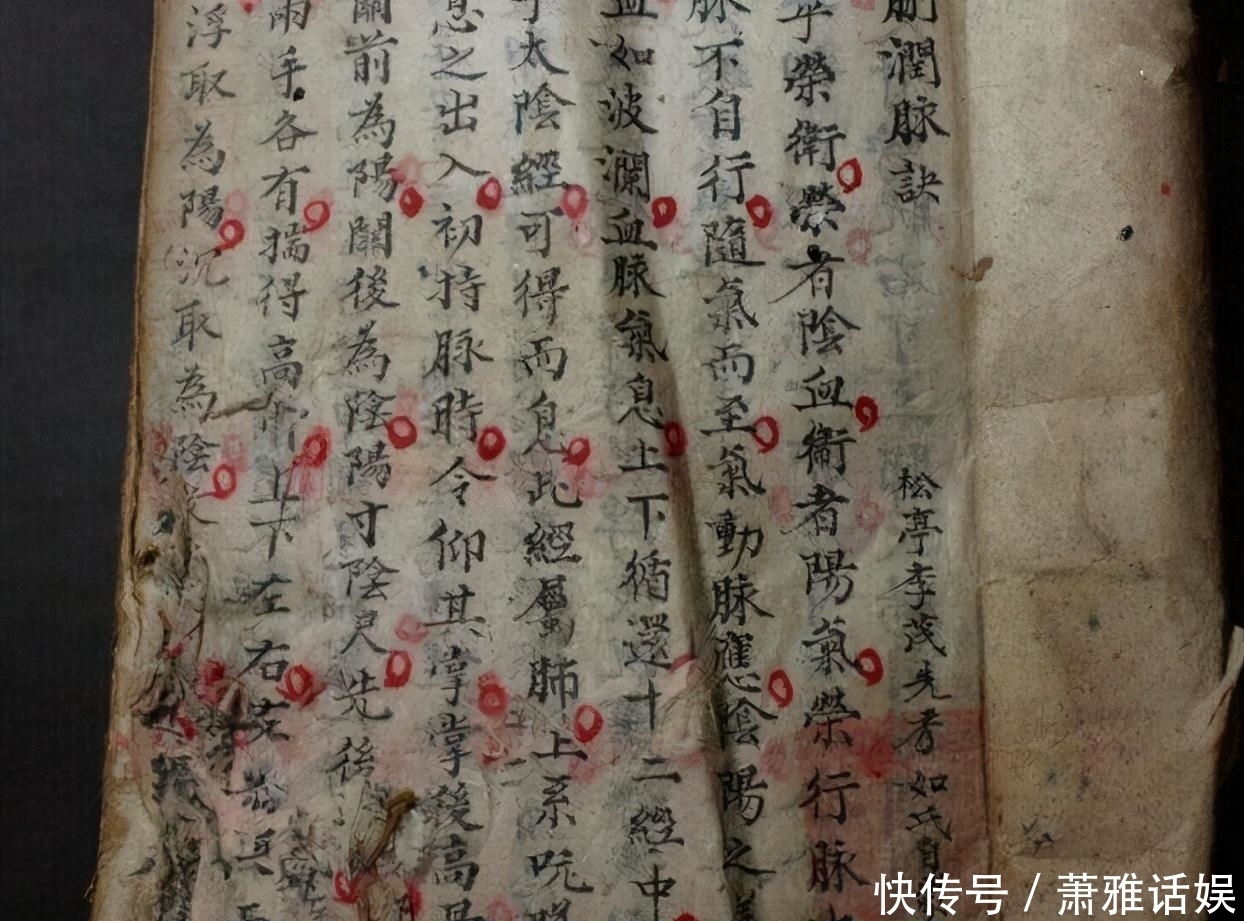 潤脉訣
松亭李茂先考如氏
乎榮衛榮者陰血衞者陽氣榮行脉
脉不自行隨氣而至氣動脉應陰陽之
血如波瀾血脉氣息上下循還十二經中
手太陰經可得而息此經屬肺上系吭
息之出入初持脉時令仰其掌掌後高
關前為陽關後為陰陽寸陰尺先後
兩手各有揣得高 上下左右
浮取為陽沉取為陰
快传号 / 萧雅话娱